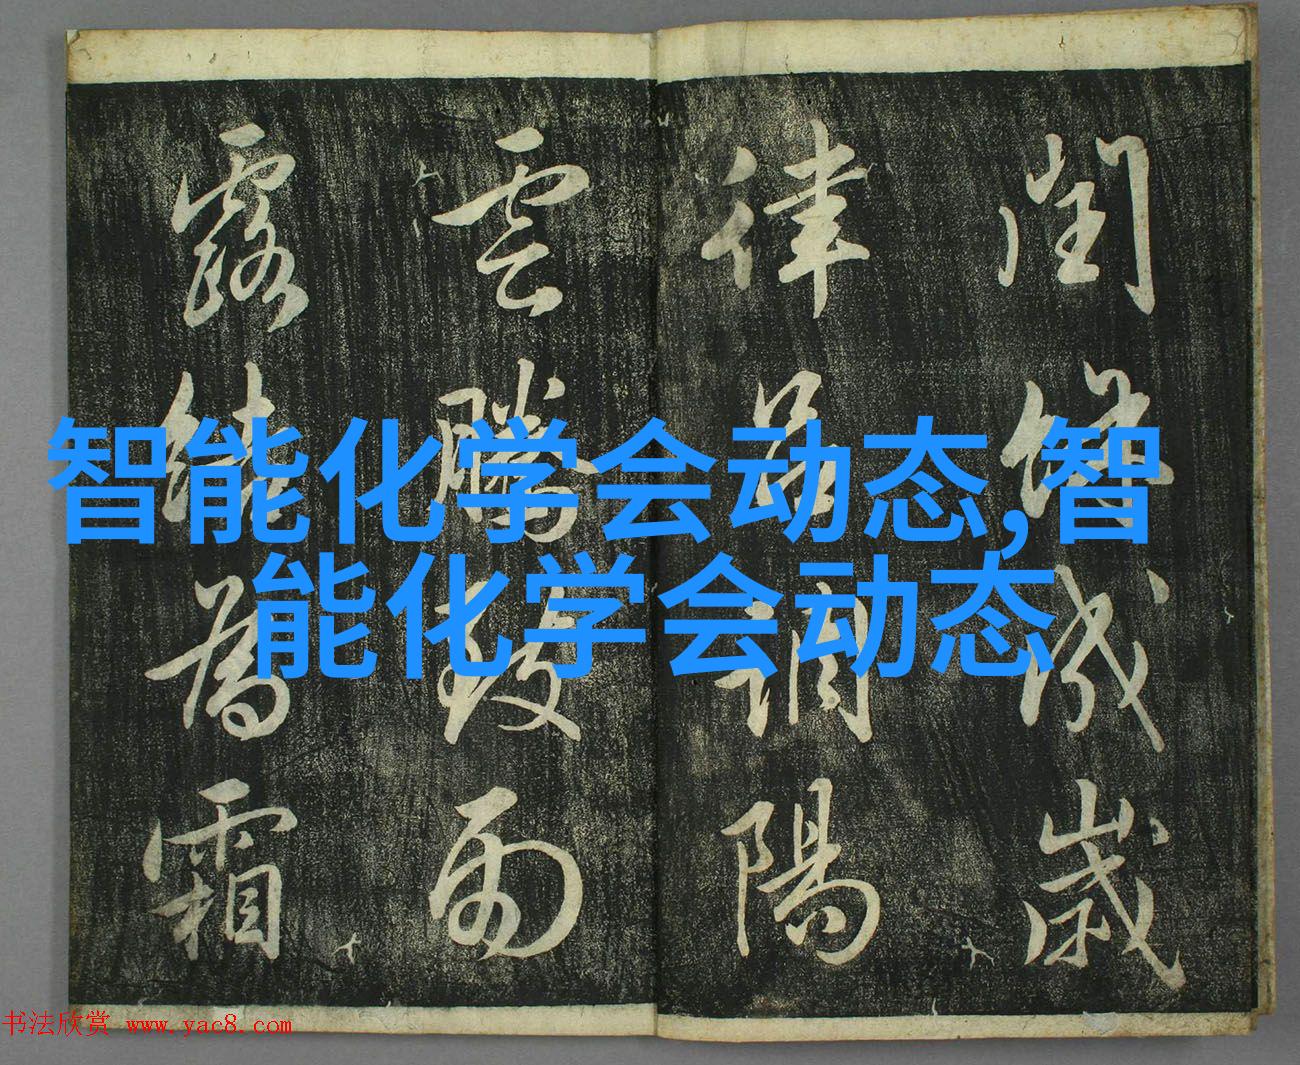 閏餘成歲
律呂調陽
雲騰致雨
露結為霜
智能化学会动态,智
能化学会动态
书法欣赏 www.yac8.com